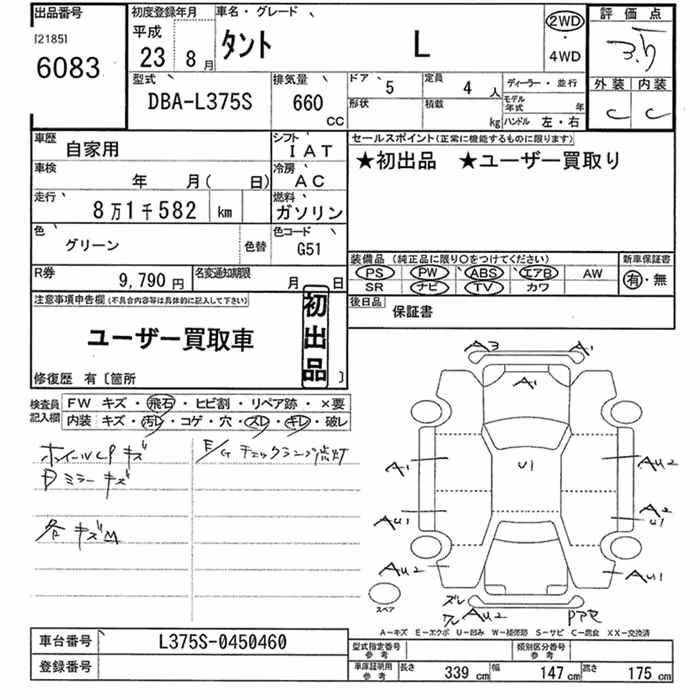 出品番号
[2185]
6083
初度登録年月
平成
23 8月
車名・グレード
タント L
2WD
・
4WD
評価点
3.5
外装 内装
C C
型式
DBA-L375S
排気量
660
CC
ドア 5
形状
定員 4 人
積載 kg
ディーラー・並行
モデル年式 年
ハンドル 左・右
車歴 自家用
シフト IAT
車検 年 月( 日)
冷房 AC
走行 8万1千582 km
燃料 ガソリン
色 グリーン 色替
色コード G51
R券 9,790円
名変通知期限 月 日
セールスポイント(正常に機能するものに限ります)
★初出品 ★ユーザー買取り
装備品(純正品に限り○をつけてください)
PS PW ABS エアB AW
SR ナビ TV カワ
新車保証書
有・無
後日品 保証書
注意事項申告欄(不具合内容等は具体的に記入して下さい)
ユーザー買取車
初出品
修復歴 有〔箇所 〕
検査員記入欄
FW キズ・飛石・ヒビ割・リペア跡・×要
内装・キズ・汚レ・コゲ・穴・ズレ・キレ・破レ
ホイールCPキズ
E/Gチェックランプ点灯
Dミラーキズ
各キズM
A3 A1
A1
A1 U1 AU2
AU1 A2
U1
AU2 AU1
スペア
ズレ
AU2
A-キズ E-エクボ U-凹み W-補修跡 S-サビ C-腐食 XX-交換済
車台番号 L375S-0450460
登録番号
型式指定番号
参考
類別区分番号
参考
車庫証明用
参考
長さ 339cm 幅 147cm 高さ 175cm